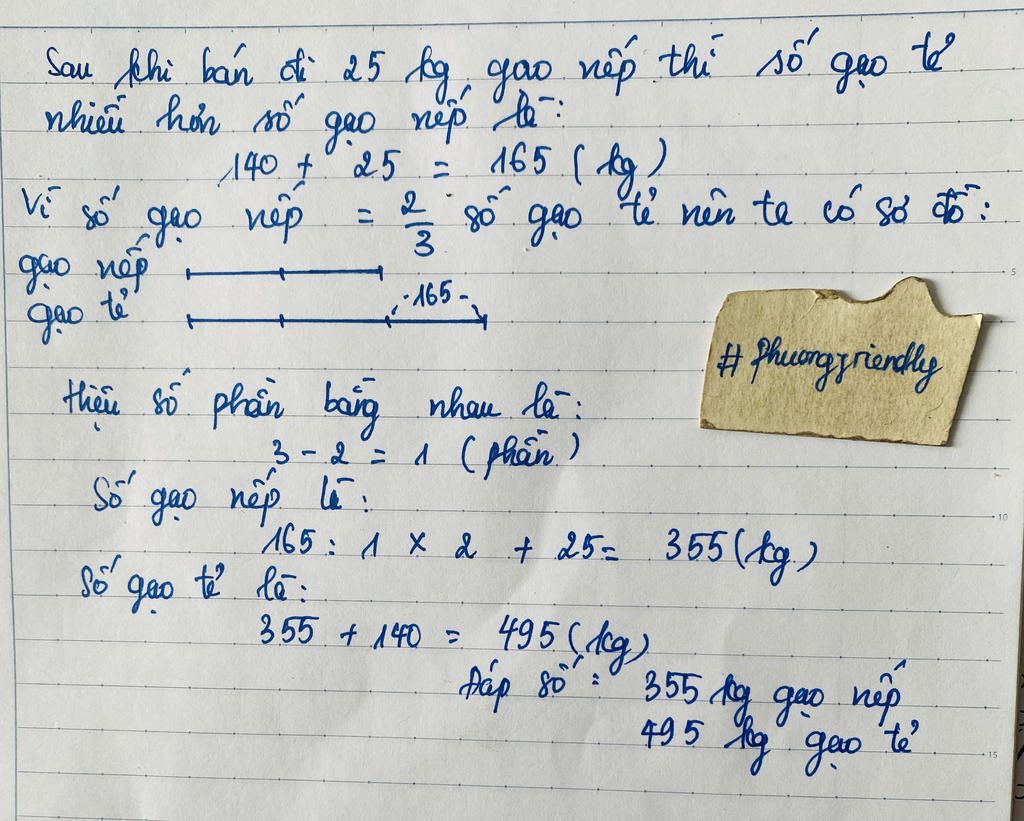 Sau khi bán đi 25 kg gạo nếp thì số gạo tẻ
nhiều hơn số gạo nếp là:
140 + 25 = 165 (kg)
Vì số gạo nếp = 2/3 số gạo tẻ nên ta có sơ đồ:
gạo nếp
gạo tẻ
165
Hiệu số phần bằng nhau là:
3 - 2 = 1 (phần)
Số gạo nếp là:
165 : 1 x 2 + 25 = 355 (kg)
Số gạo tẻ là:
355 + 140 = 495 (kg)
Đáp số: 355 kg gạo nếp
495 kg gạo tẻ
# phuongfriendly
5
10
15